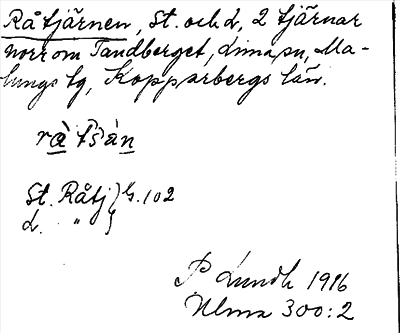 Råtjärnen, St. och L, 2 tjärnar
norr om Tandberget, Lima sn, Ma-
lungs tg, Kopparbergs län.
rà tsàn
St. Råtj } G. 102
L. " }
P Lundh 1916
Ulma 300:2